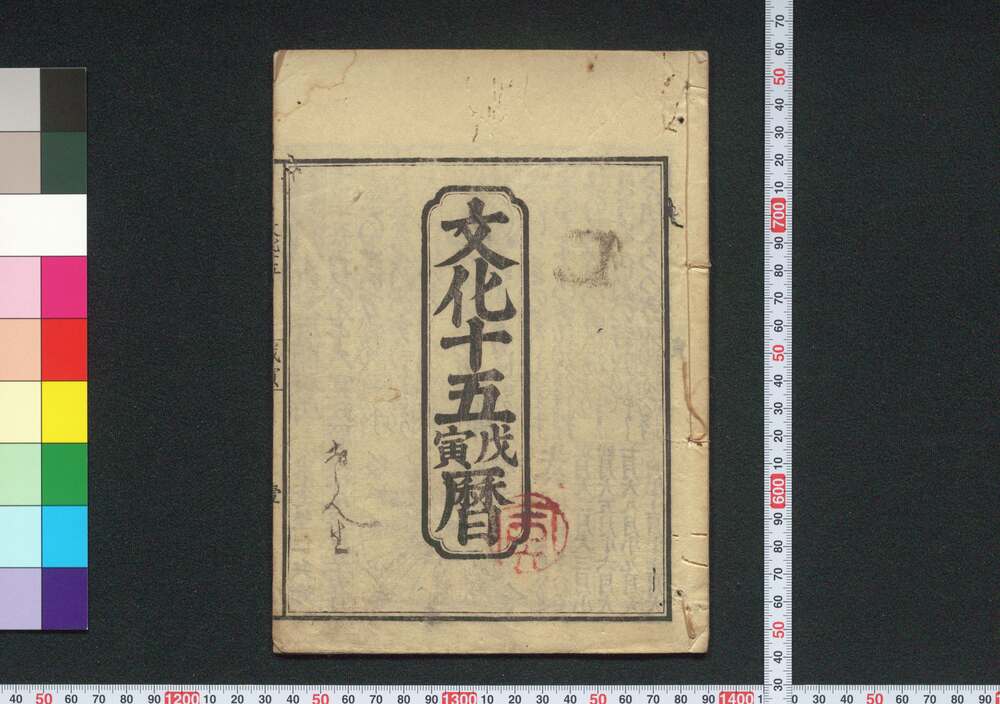 文化十五戊寅暦
70
50
40
30
20
10
700
90
80
70
60
50
40
30
20
10
600
90
80
70
60
50
40
30
40 50 60 70 80 90 1200 10 20 30 40 50 60 70 80 90 1300 10 20 30 40 50 60 70 80 90 1400 20 30 40 50 60 70 80 90